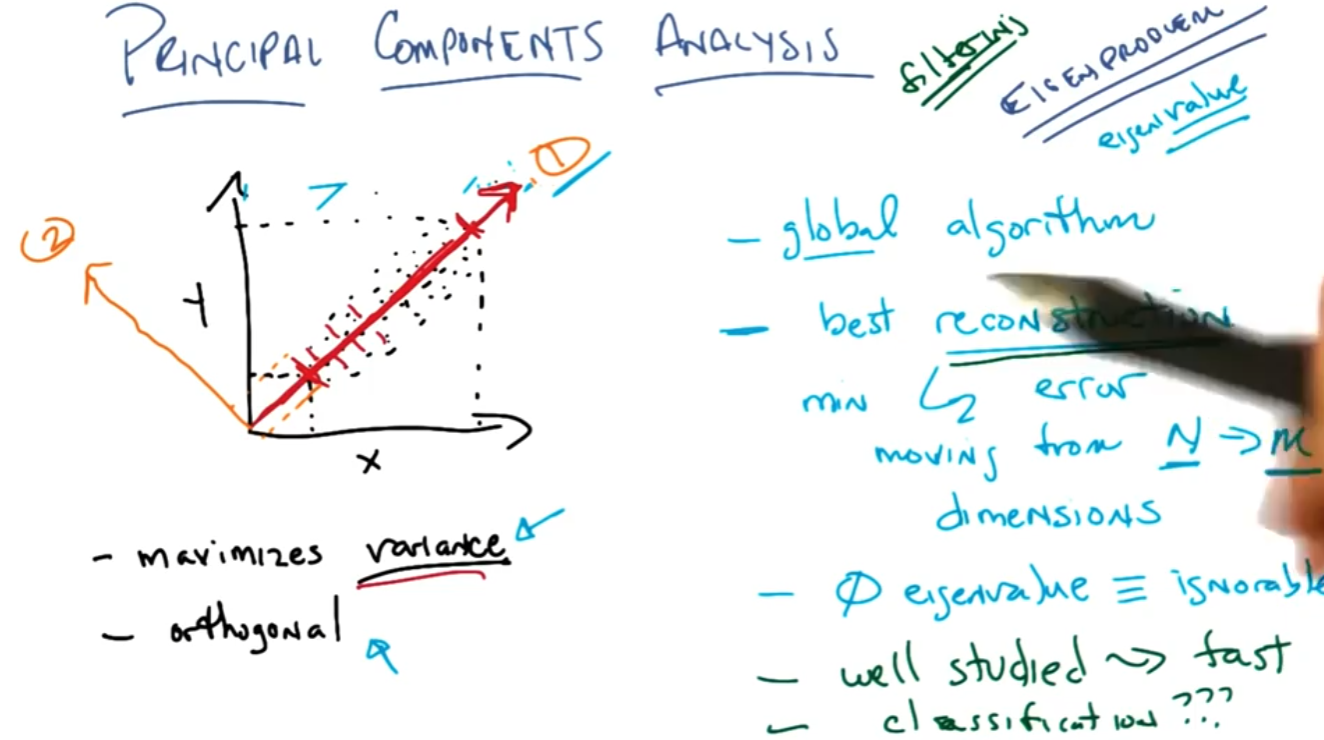 PRINCIPAL COMPONENTS ANALYSIS
filtering
EIGENPROBLEM
eigenvalue
1
2
Y
X
- maximizes variance
- orthogonal
- global algorithm
- best reconstruction
min error
moving from N → M
dimensions
- Ø eigenvalue ≡ ignorable
- well studied ⇝ fast
- classification ???